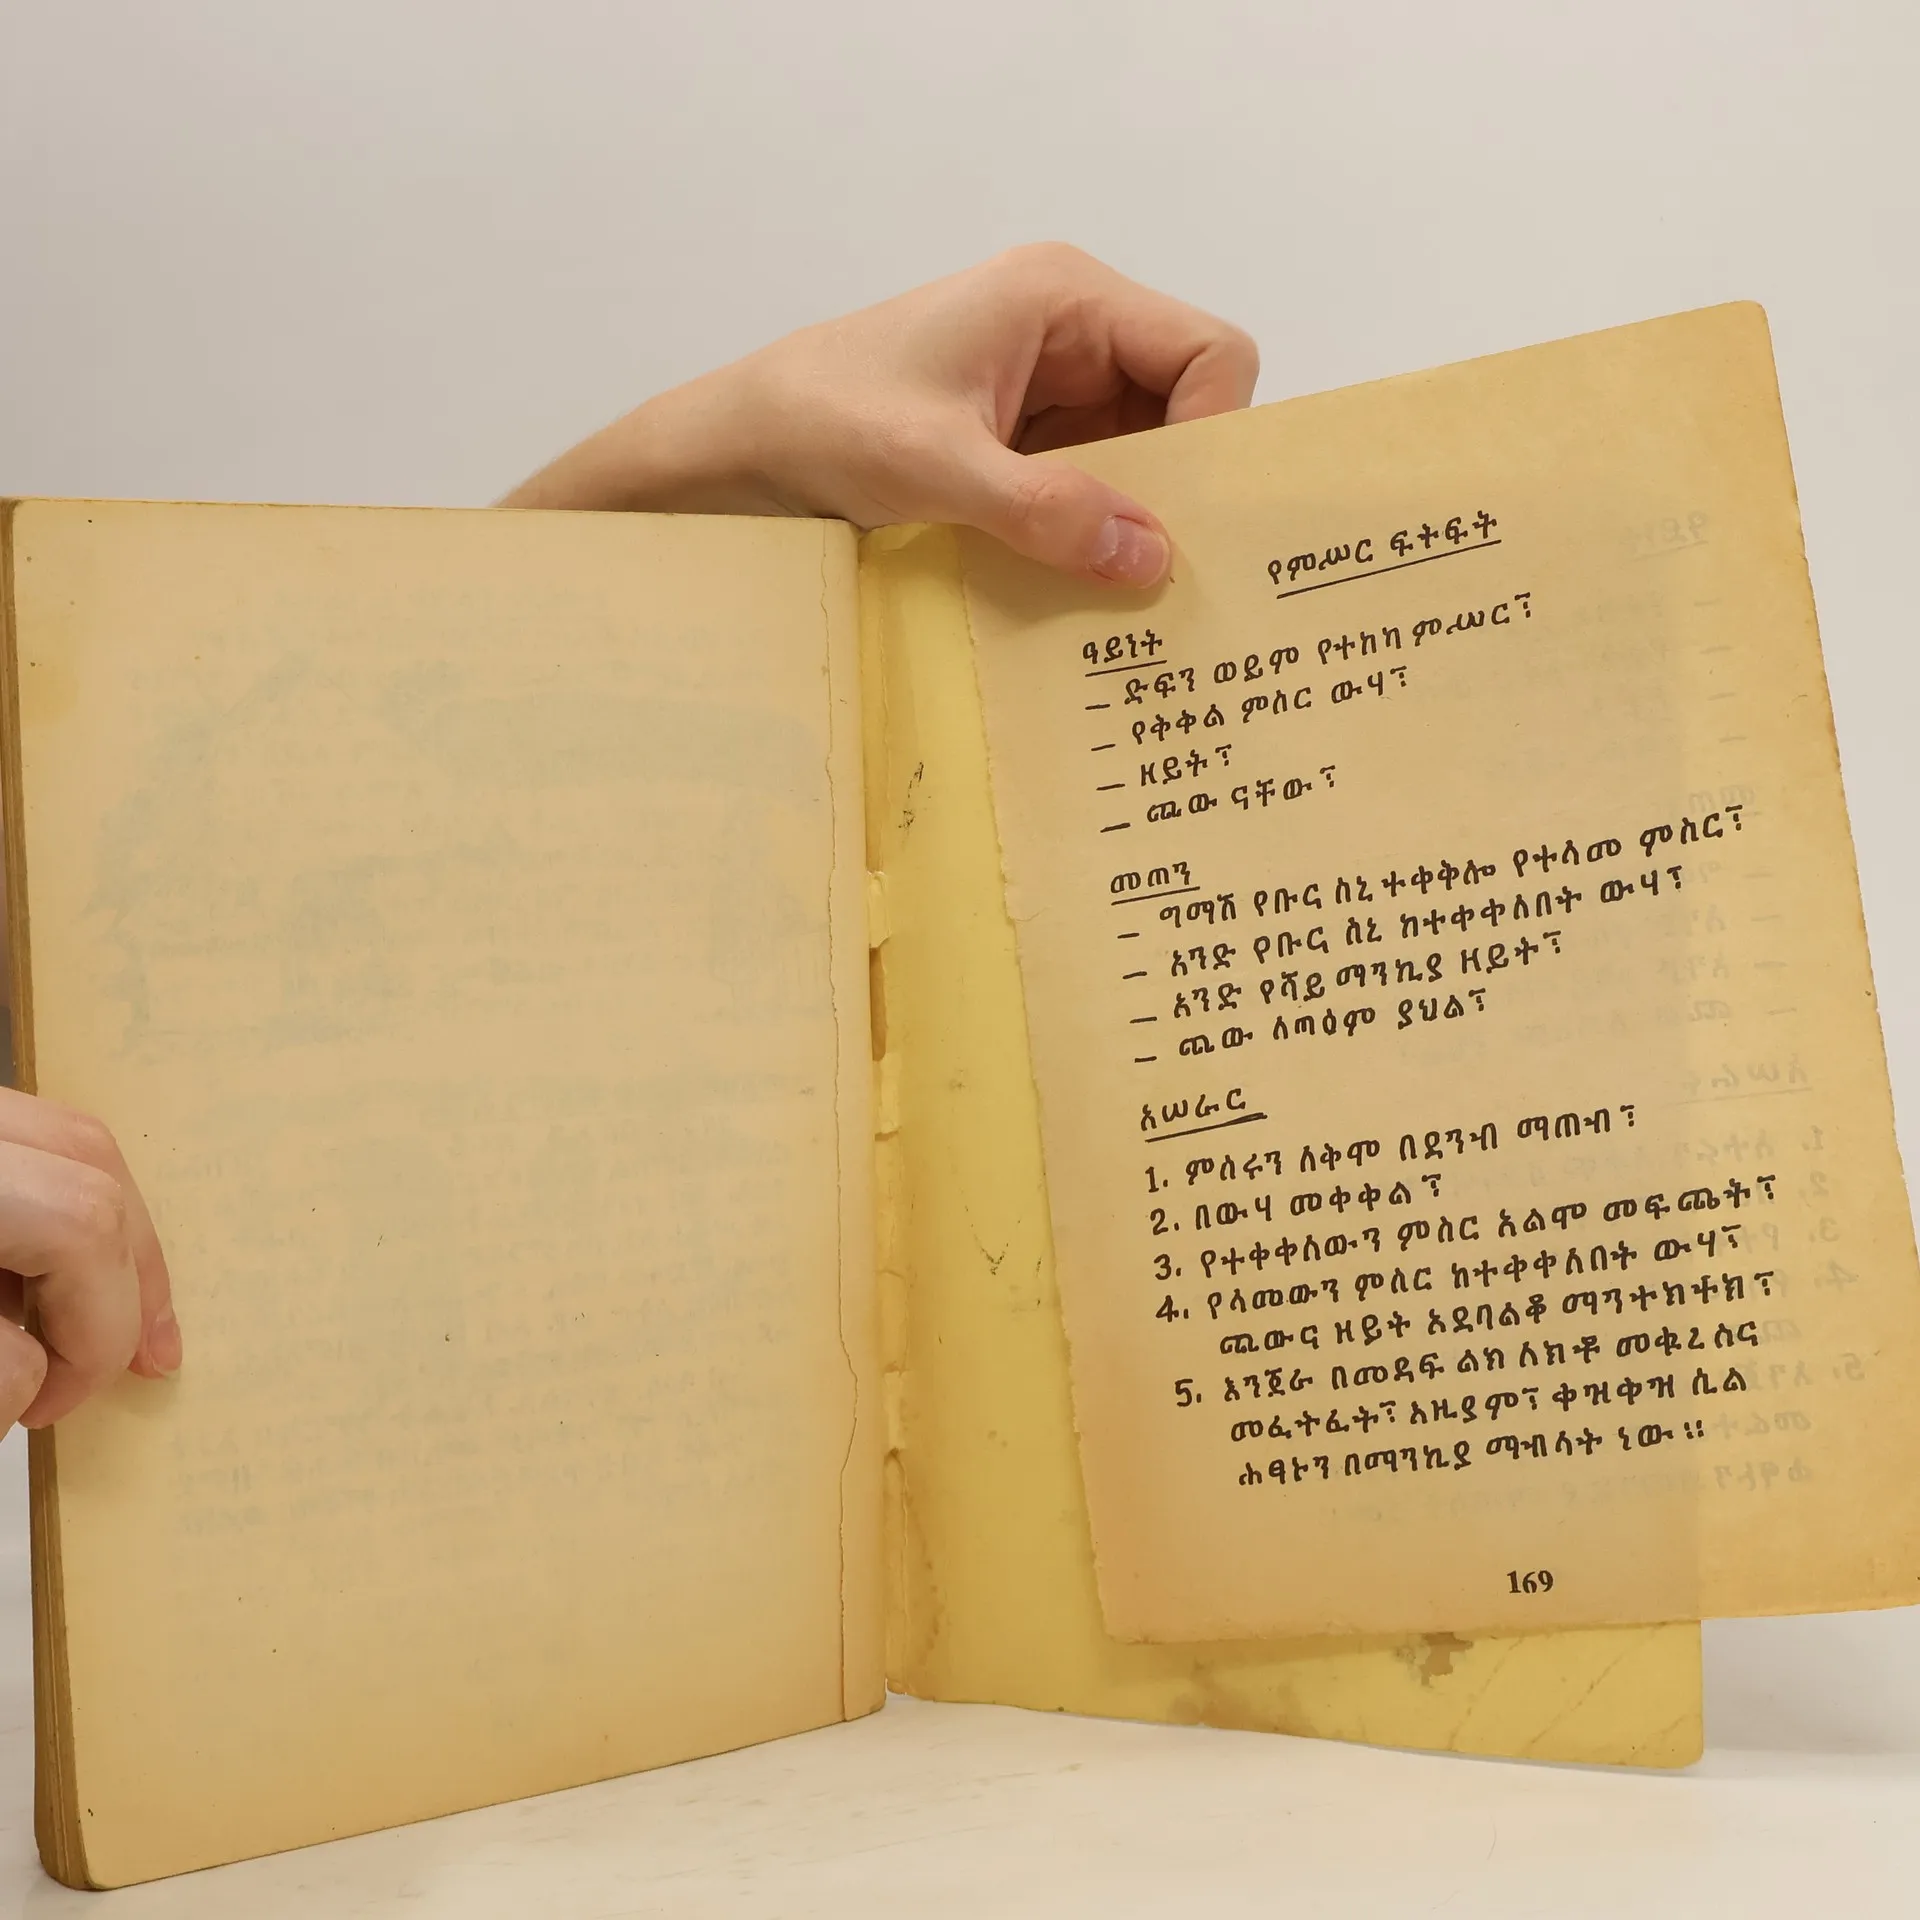 የምሥር ፍትፍት
ዓይነት
— ድፍን ወይም የተከካ ምሥር፤
— የቅቅል ምስር ውሃ፤
— ዘይት፤
— ጨው ናቸው፤
መጠን
— ግማሽ የቡና ስኒ ተቀቅሎ የተላመ ምስር፤
— አንድ የቡና ስኒ ከተቀቀለበት ውሃ፤
— አንድ የሻይ ማንኪያ ዘይት፤
— ጨው ለጣዕም ያህል፤
አሠራር
1. ምስሩን ለቅሞ በደንብ ማጠብ፤
2. በውሃ መቀቀል፤
3. የተቀቀለውን ምስር አልሞ መፍጨት፤
4. የላመውን ምስር ከተቀቀለበት ውሃ፤
ጨውና ዘይት አደባልቆ ማንተክተክ፤
5. እንጀራ በመዳፍ ልክ ለክቶ መቁረስና
መፈትፈት፤ አዚያም፤ ቀዝቀዝ ሲል
ሕፃኑን በማንኪያ ማብላት ነው።
169